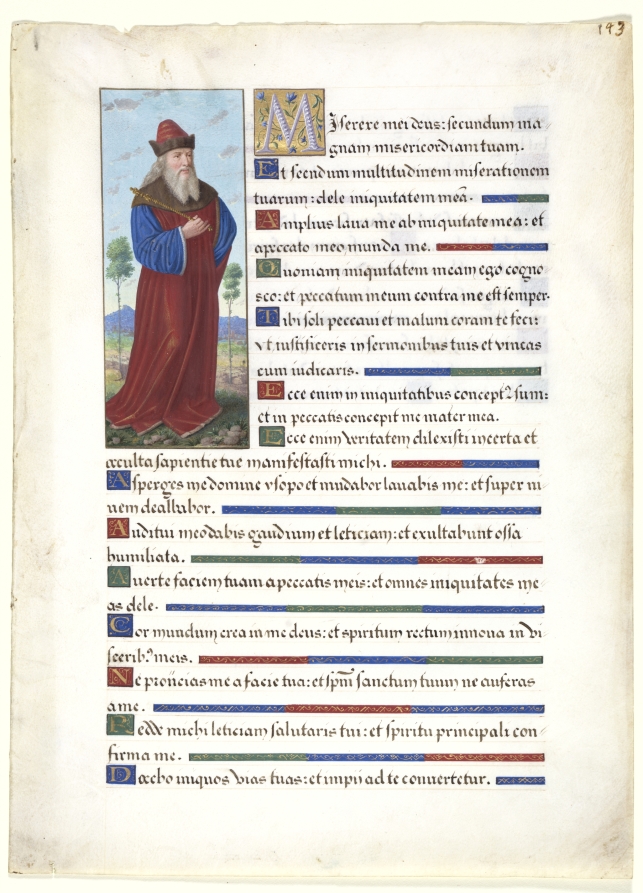 143
Miserere mei deus: secundum ma
gnam misericordiam tuam.
Et secundum multitudinem miserationem
tuarum: dele iniquitatem meā.
Amplius laua me ab iniquitate mea: et
apeccato meo munda me.
Quoniam iniquitatem meam ego cogno
sco: et peccatum meum contra me est semper.
Tibi soli peccaui et malum coram te feci:
vt iustificeris in sermonibus tuis et vincas
cum iudicaris.
Ecce enim in iniquitatibus concept9 sum:
et in peccatis concepit me mater mea.
Ecce enim veritatem dilexisti incerta et
occulta sapientie tue manifestasti michi.
Asperges me domine ysopo et mūdabor lauabis me: et super ni
uem dealbabor.
Auditui meo dabis gaudium et leticiam: et exultabunt ossa
humiliata.
Auerte faciem tuam a peccatis meis: et omnes iniquitates me
as dele.
Cor mundum crea in me deus: et spiritum rectum innoua in vi
scerib9 meis.
Ne proiicias me a facie tua: et spm̄ sanctum tuum ne auferas
a me.
Redde michi leticiam salutaris tui: et spiritu principali con
firma me.
Docebo iniquos vias tuas: et impii ad te conuertetur.